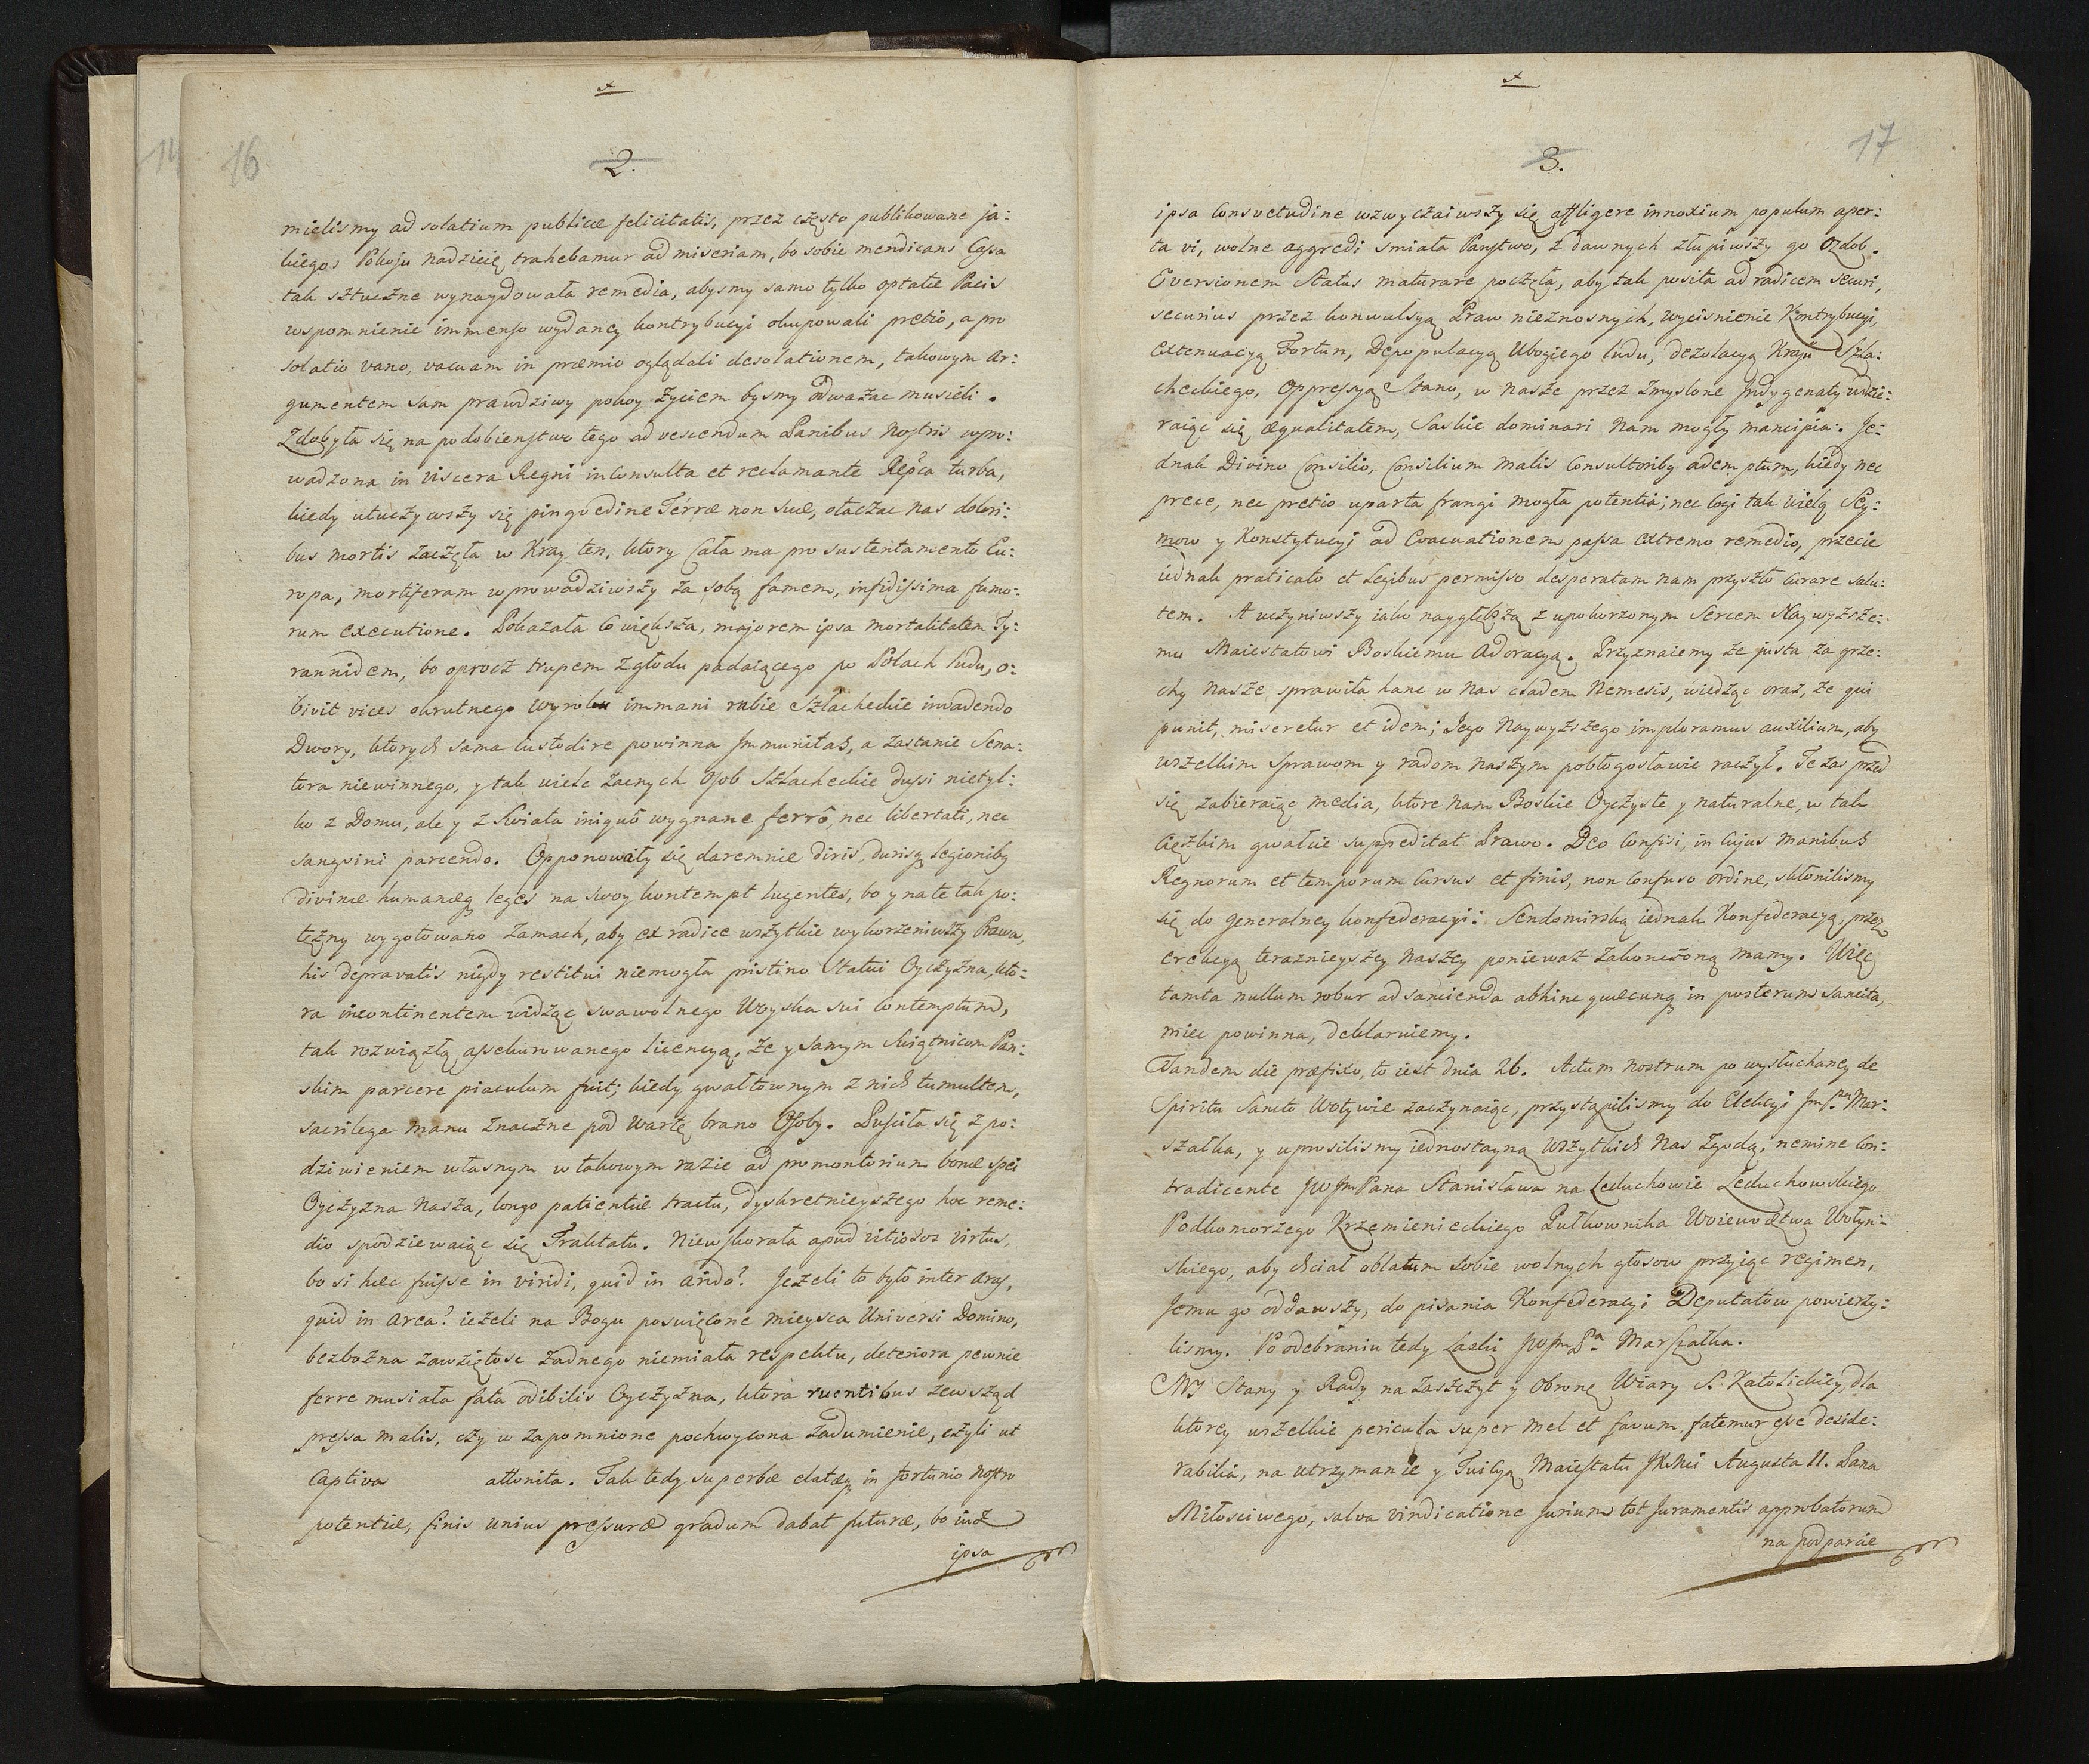 x
16
2.
mielismy ad solatium publicæ felicitatis, przez często publikowane ja:
kiegoś Pokoju nadzieię trahebamur ad miseriam, bo sobie mendicans Cassa
tak sztuczne wynaydowała remedia, abysmy samo tylko optatæ Pacis
wspomnienie immenso wydaney kontrybucyi okupowali pretio, a pro
solatio vano, vacuam in præmio oglądali desolationem, takowym ar:
gumentem sam prawdziwy pokoy życiem bysmy odważac musieli.
Zdobyła się na podobienstwo tego ad vescendum Panibus Nostris wpro:
wadzona in viscera Regni inconsulta et reclamante Repca turba,
kiedy utuczywszy się pingvedine Terræ non suæ, otaczac nas dolori:
bus mortis zaczęła w Kray ten, ktory Cała ma pro sustentamento Eu:
ropa, mortiferam wprowadziwszy za sobą famem, infidissima fumo:
rum executione. Pokazała co większa, majorem ipsa mortalitatem Ty:
rannidem, bo oprocz trupem z głodu padaiącego po Polach ludu, o:
bivit vices okrutnego wyroku immani rabie Szlacheckie invadendo
Dwory, ktorych sama custodire powinna Immunitas, a zastanie Sena:
tora niewinnego, y tak wiele zacnych Osob Szlacheckie dussi nietyl:
ko z Domu, ale y z Swiata iniquô wygnane ferrô, nec libertati, nec
sangvini parcendo. Opponowały się daremnie diris, durisq legionibq
divinæ humanæq leges na swoy kontempt lugentes, bo y na te tak po:
tężny wygotowano zamach, aby ex radice wszytkie wykorzeniwszy Prawa,
his depravatis nigdy restitui niemogła pristino Statui Oyczyzna, kto:
ra incontinentem widząc swawolnego Woyska sui Contemptum,
tak rozwiązłą assekurowanego licencyą. że y samym Swiątnicom Pan:
skim parcere piaculum fuit; kiedy gwałtownym z nich tumultem,
sacrilega manu znaczne pod wartę brano Osoby. Puscita się z po:
dziwieniem własnym w takowym razie ad promontorium bonæ spei
Oyczyzna Nasza, longo patientiæ tractu, dyskretnieyszego hoc reme:
dio spodziewaiąc się Traktatu. Niewskorała apud vitiosos virtus,
bo si hæc fuisse in viridi, quid in arido? Jezeli to było inter aras,
quid in area? ieżeli na Bogu poswięcone mieysca Universi Domino,
bezbożna zawziętosc żadnego niemiała respektu, deteriora pewnie
ferre musiała fata odibilis Oyczyzna, ktora ruentibus zewsząd
pressa malis, czy w zapomnione pochwycona zadumienie, czyli ut
Captiva attonita. Tak tedy superbæ elatæq in fortunio nostro
potentiæ, finis unius pressuræ gradum dabat futuræ, bo iuż
ipsa
x
17
3.
ipsa Consvetudine wzwyczaiwszy się affligere innoxium populum aper:
ta vi, wolne aggredi smiała Panstwo, z dawnych złupiwszy go Ozdob.
Eversionem Status maturare poczęła, aby tak posita ad radicem securi,
securius przez konwulsyą Praw nieznosnych, wycisnienie Kontrybucyi,
extenuacyą Fortun, Depopulacyą Ubogiego ludu, dezolacyą Kraju Szla:
checkiego, Oppressyą Stanu, w Nasze przez zmyslone Indygenaty wdzie:
raiąc się æqualitatem, Saskie dominari Nam mogły mancipia. Je:
dnak Divino Consilio, Consilium malis Consultoribq ademptum, kiedy nec
prece, nec pretio uparta frangi mogła potentia; nec cogi tak wielą Sey:
mow y Konstytucyi ad Evacuationem passa extremo remedio, przecie
iednak praticato et Legibus permisso desperatam nam przyszło curare salu:
tem. A uczyniwszy iako naygłębszą z upokorzonym Sercem Naywyzsze:
mu Maiestatowi Boskiemu Adoracyą. Przyznaiemy że justa za grze:
chy Nasze sprawiła hanc w Nas cladem Nemesis, wiedząc oraz, że qui
punit, miseretur et idem; Jego Naywyższego imploramus auxilium, aby
wszelkim sprawom y radom Naszym pobłogosławic raczył. Te zas przed
się zabieraiąc media, ktore Nam Boskie Oyczyste y naturalne, w tak
Cięzkim gwałcie suppeditat Prawo. Deo Confisi, in Cujus Manibus
Regnorum et temporum Cursus et finis, non Confuso Ordine, skłonilismy
się do Generalney konfederacyi: Sendomirską iednak Konfederacyą, przez
erekcyą teraznieyszey Naszey poniewaz zakonczoną mamy. Więc
tamta nullum robur ad sancienda abhinc quæcunq in posterum Sancita,
miec powinna, deklaruiemy.
Tandem die præfixo, to iest dnia 26. Actum Nostrum po wysłuchaney de
Spiritu Sancto Wotywie zaczynaiąc, przystąpilismy do Elekcyi Jmsci Pan Mar:
szałka, y uprosilismy iednostayną wszytkich Nas zgodą, nemine Con:
tradicente JWJm Pana Stanisława na Leduchowie Leduchowskiego
Podkomorzego Krzemienieckiego Pułkownika Woiewodztwa Wołyn:
skiego, aby chciał oblatum sobie wolnych głosow przyiąc regimen,
Jemu go oddawszy, do pisania Konfederacyi Deputatow powierzy:
lismy. Po odebraniu tedy Laski JWJm Pa Marszałka.
My Stany y Rady na zaszczyt y Obronę Wiary S. Katolickiey, dla
ktorey wszelkie pericula super mel et favum fatemur esse deside:
rabilia, na utrzymanie y Tuicyą Maiestatu JKMci Augusta II. Pana
Miłosciwego, salva vindicatione Jurium tot Juramentis approbatorum
na podparcie